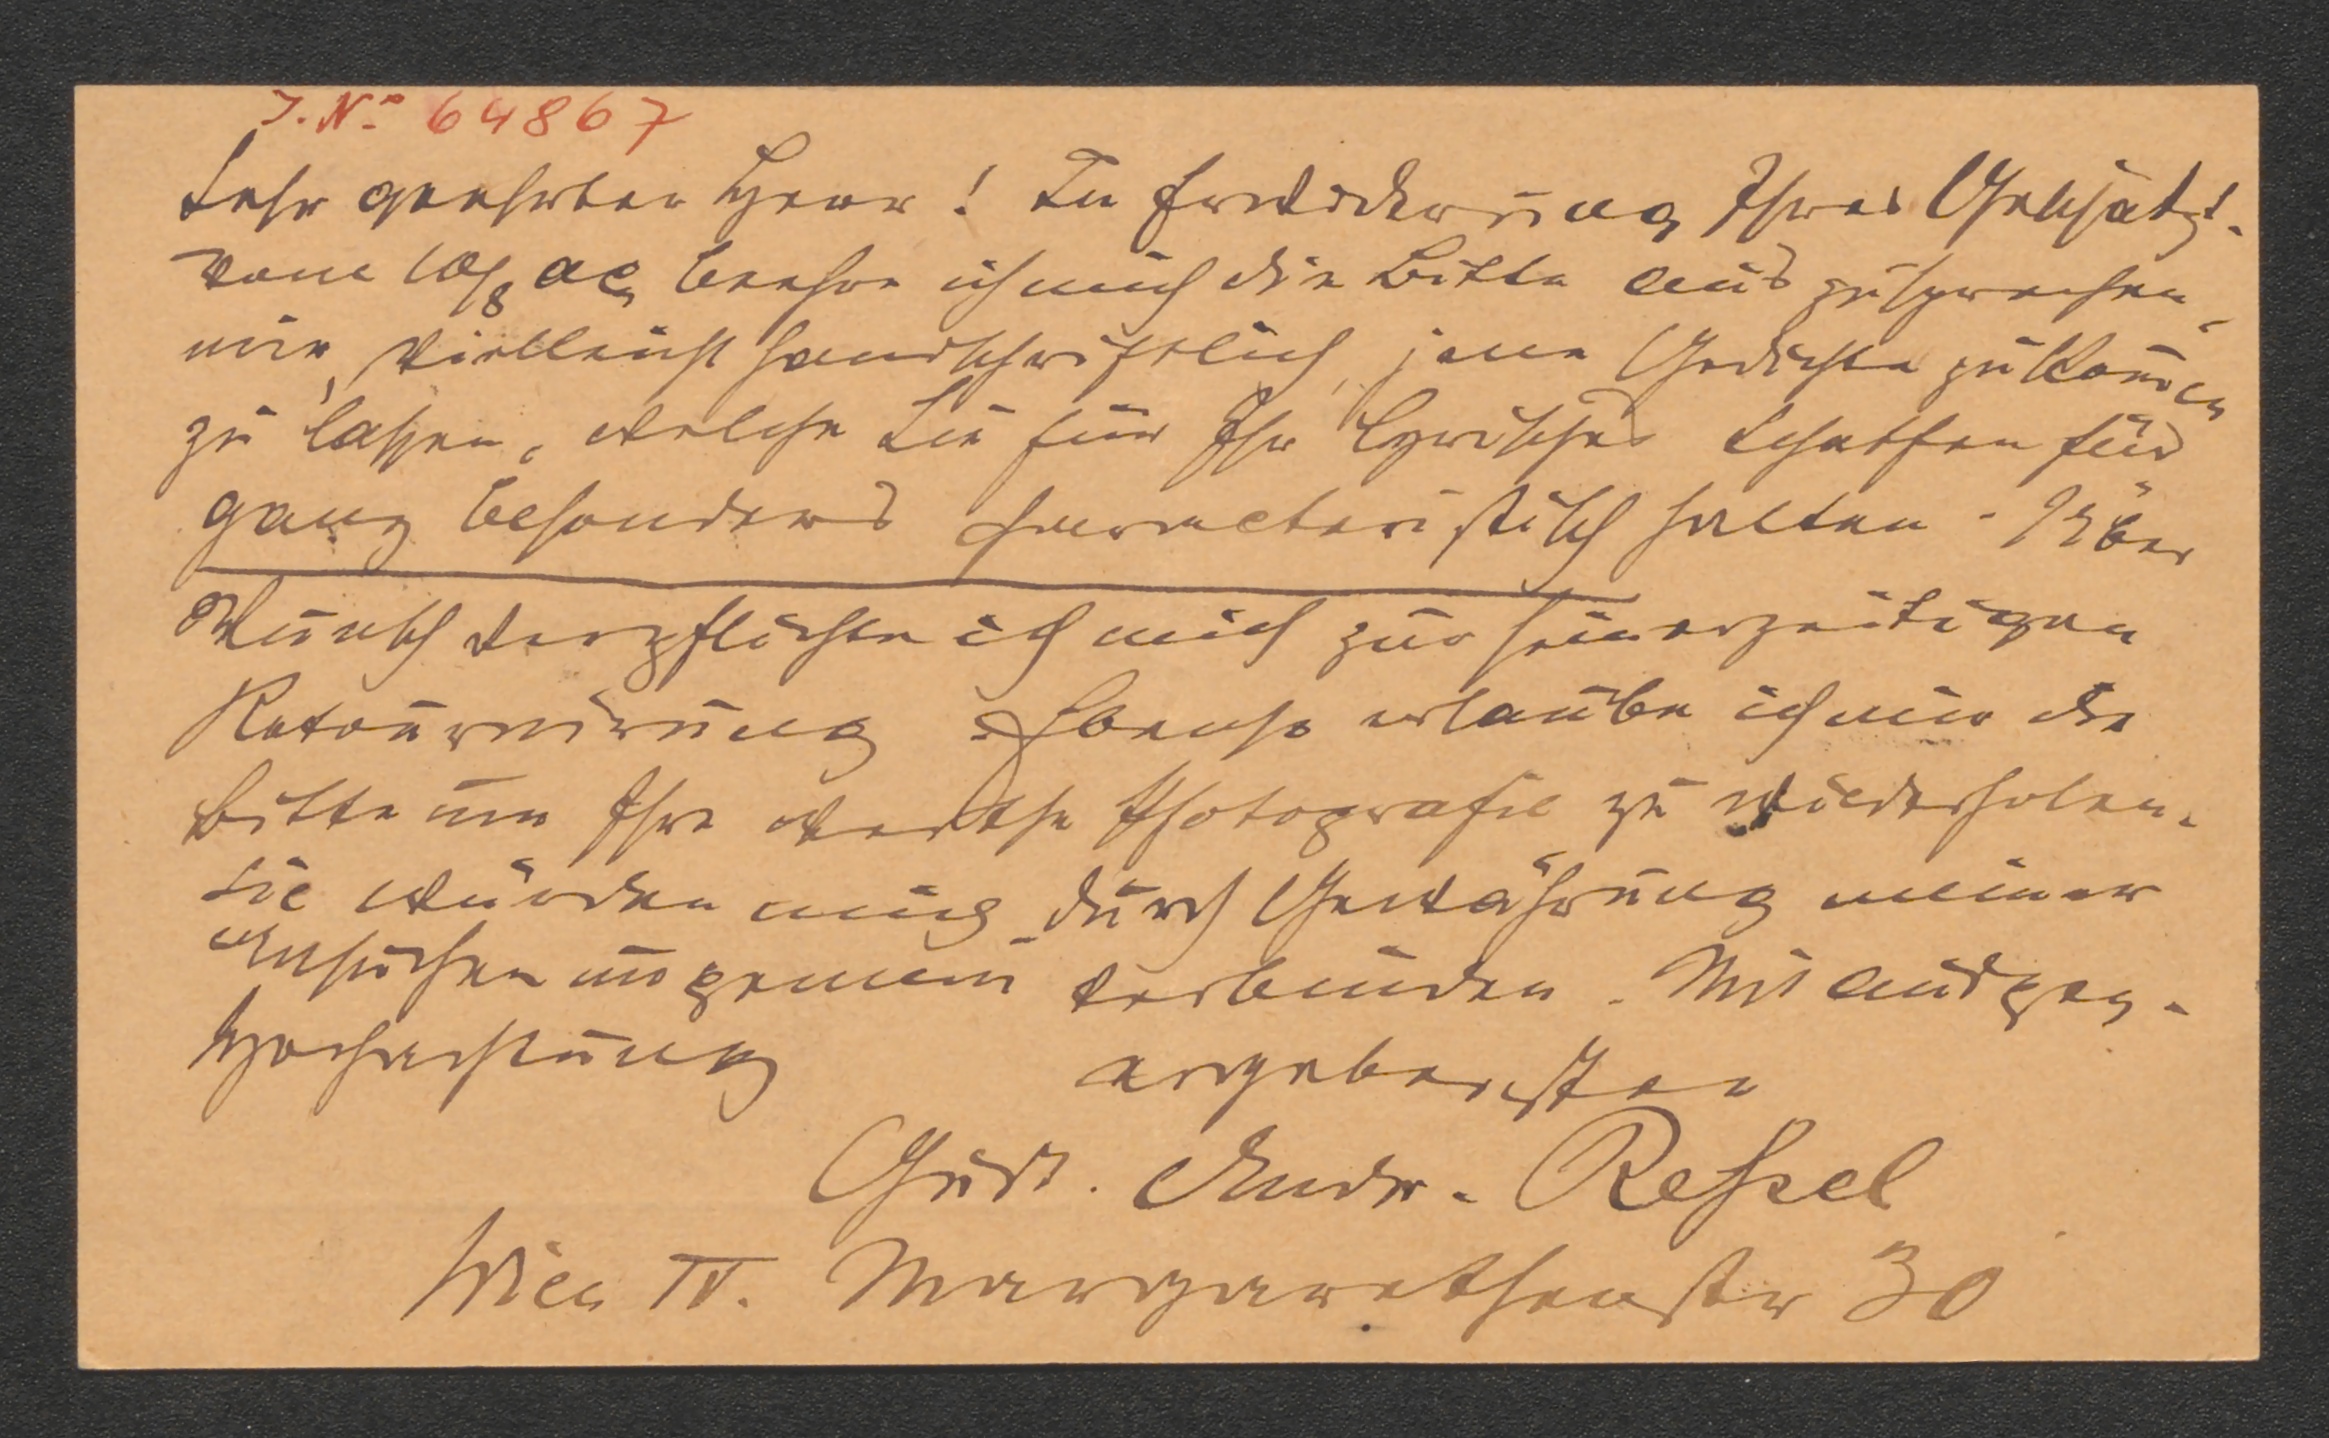 J. No 64867
Sehr geehrter Herr! In Erwiderung Ihres Gesch.
vom 10/8 ac. beehre ich mich die Bitte auszusprechen,
mir, vielleicht handschriftlich, jene Gedichte zukommen
zu lassen, welche Sie für Ihr lyrisches Schaffen für
ganz besonders characteristisch halten. Über
Wunsch verpflichte ich mich zur seinerzeitigen
Retournirung. Ebenso erlaube ich mir die
Bitte um Ihre werthe Photografie zu wiederholen.
Sie würden mich durch Gewährung meiner
Ansuchen ungemein verbinden. Mit ausgez.
Hochachtung ergebenster
Gust. Andr. Ressel
Wien IV. Margarethenstr 30